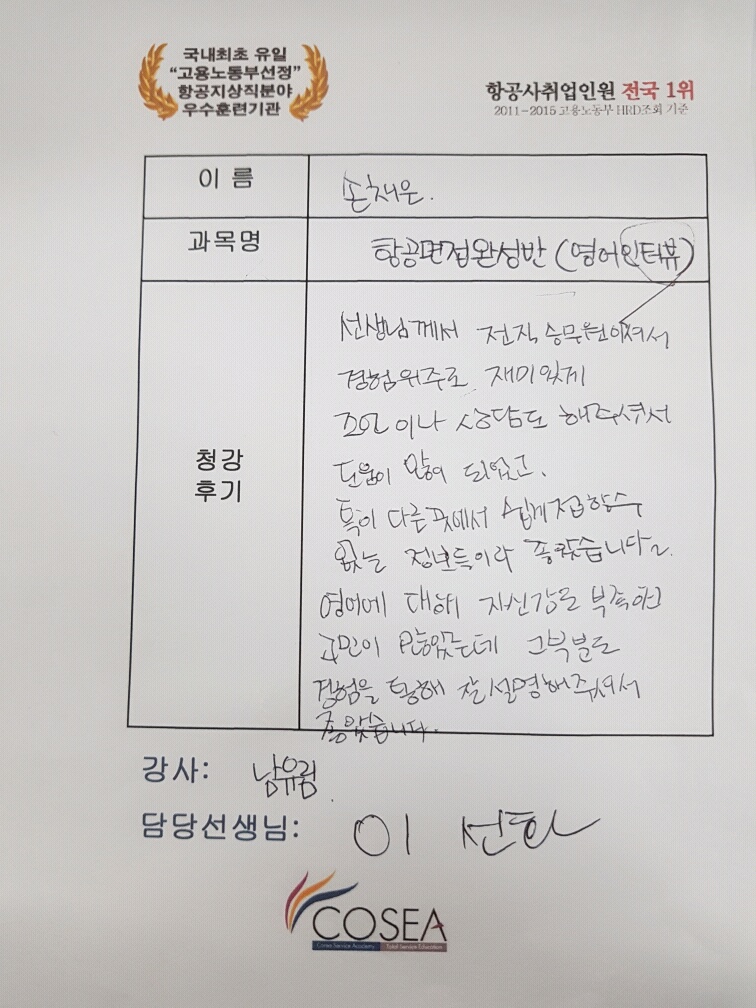 국내최초 유일
“고용노동부선정”
항공지상직분야
우수훈련기관
항공사취업인원 전국 1위
2011-2015 고용노동부 HRD조회 기준
이 름
손채은.
과목명
항공면접완성반 (영어인터뷰)
청강
후기
선생님께서 전직 승무원이셔서
경험위주로 재미있게
조언이나 상담도 해주셔서
도움이 많이 되었고.
특히 다른곳에서 쉽게접할수
없는 정보들이라 좋았습니다~
영어에 대해 자신감도 부족하고
고민이 많았는데 그부분도
경험을 통해 잘설명해주셔서
좋았습니다.
강사: 남유림.
담당선생님: 이 선화
COSEA
Corea Service Academy Total Service Education